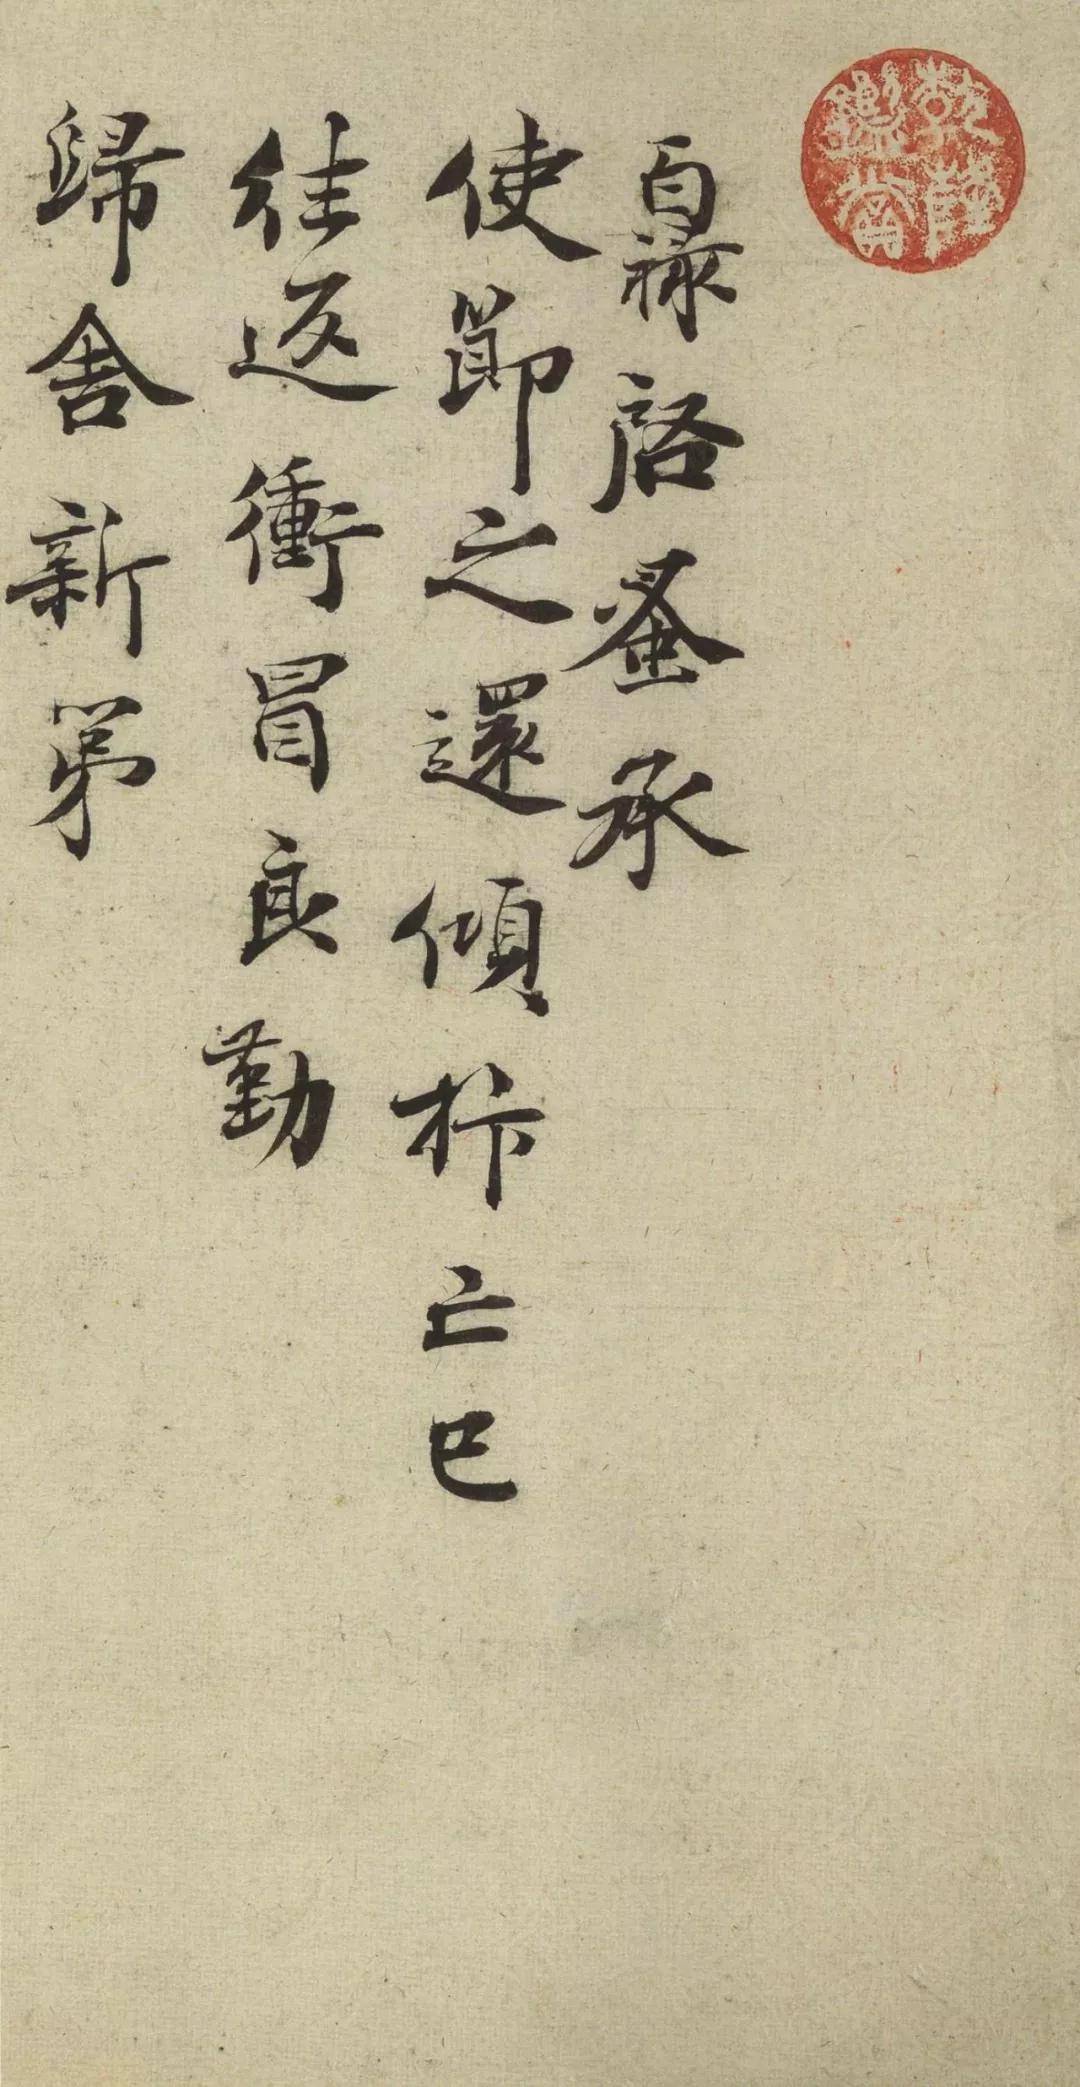 乾隆鑑賞
百祿啓蚤承
使節之還傾抃亡已
往返衝冒良勤
歸舍新第